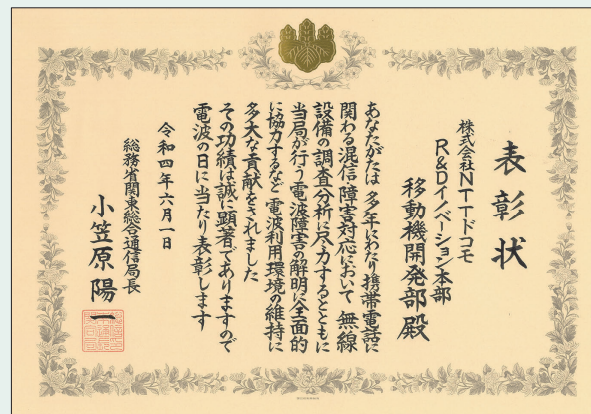 表彰状
株式会社NTTドコモ
R&Dイノベーション本部
移動機開発部殿
あなたがたは 多年にわたり携帯電話に
関わる混信障害対応において 無線
設備の調査分析に尽力するとともに
当局が行う電波障害の解明に全面的
に協力するなど 電波利用環境の維持に
多大な貢献をされました
その功績は誠に顕著でありますので
電波の日に当たり表彰します
令和四年六月一日
総務省関東総合通信局長
小笠原陽一